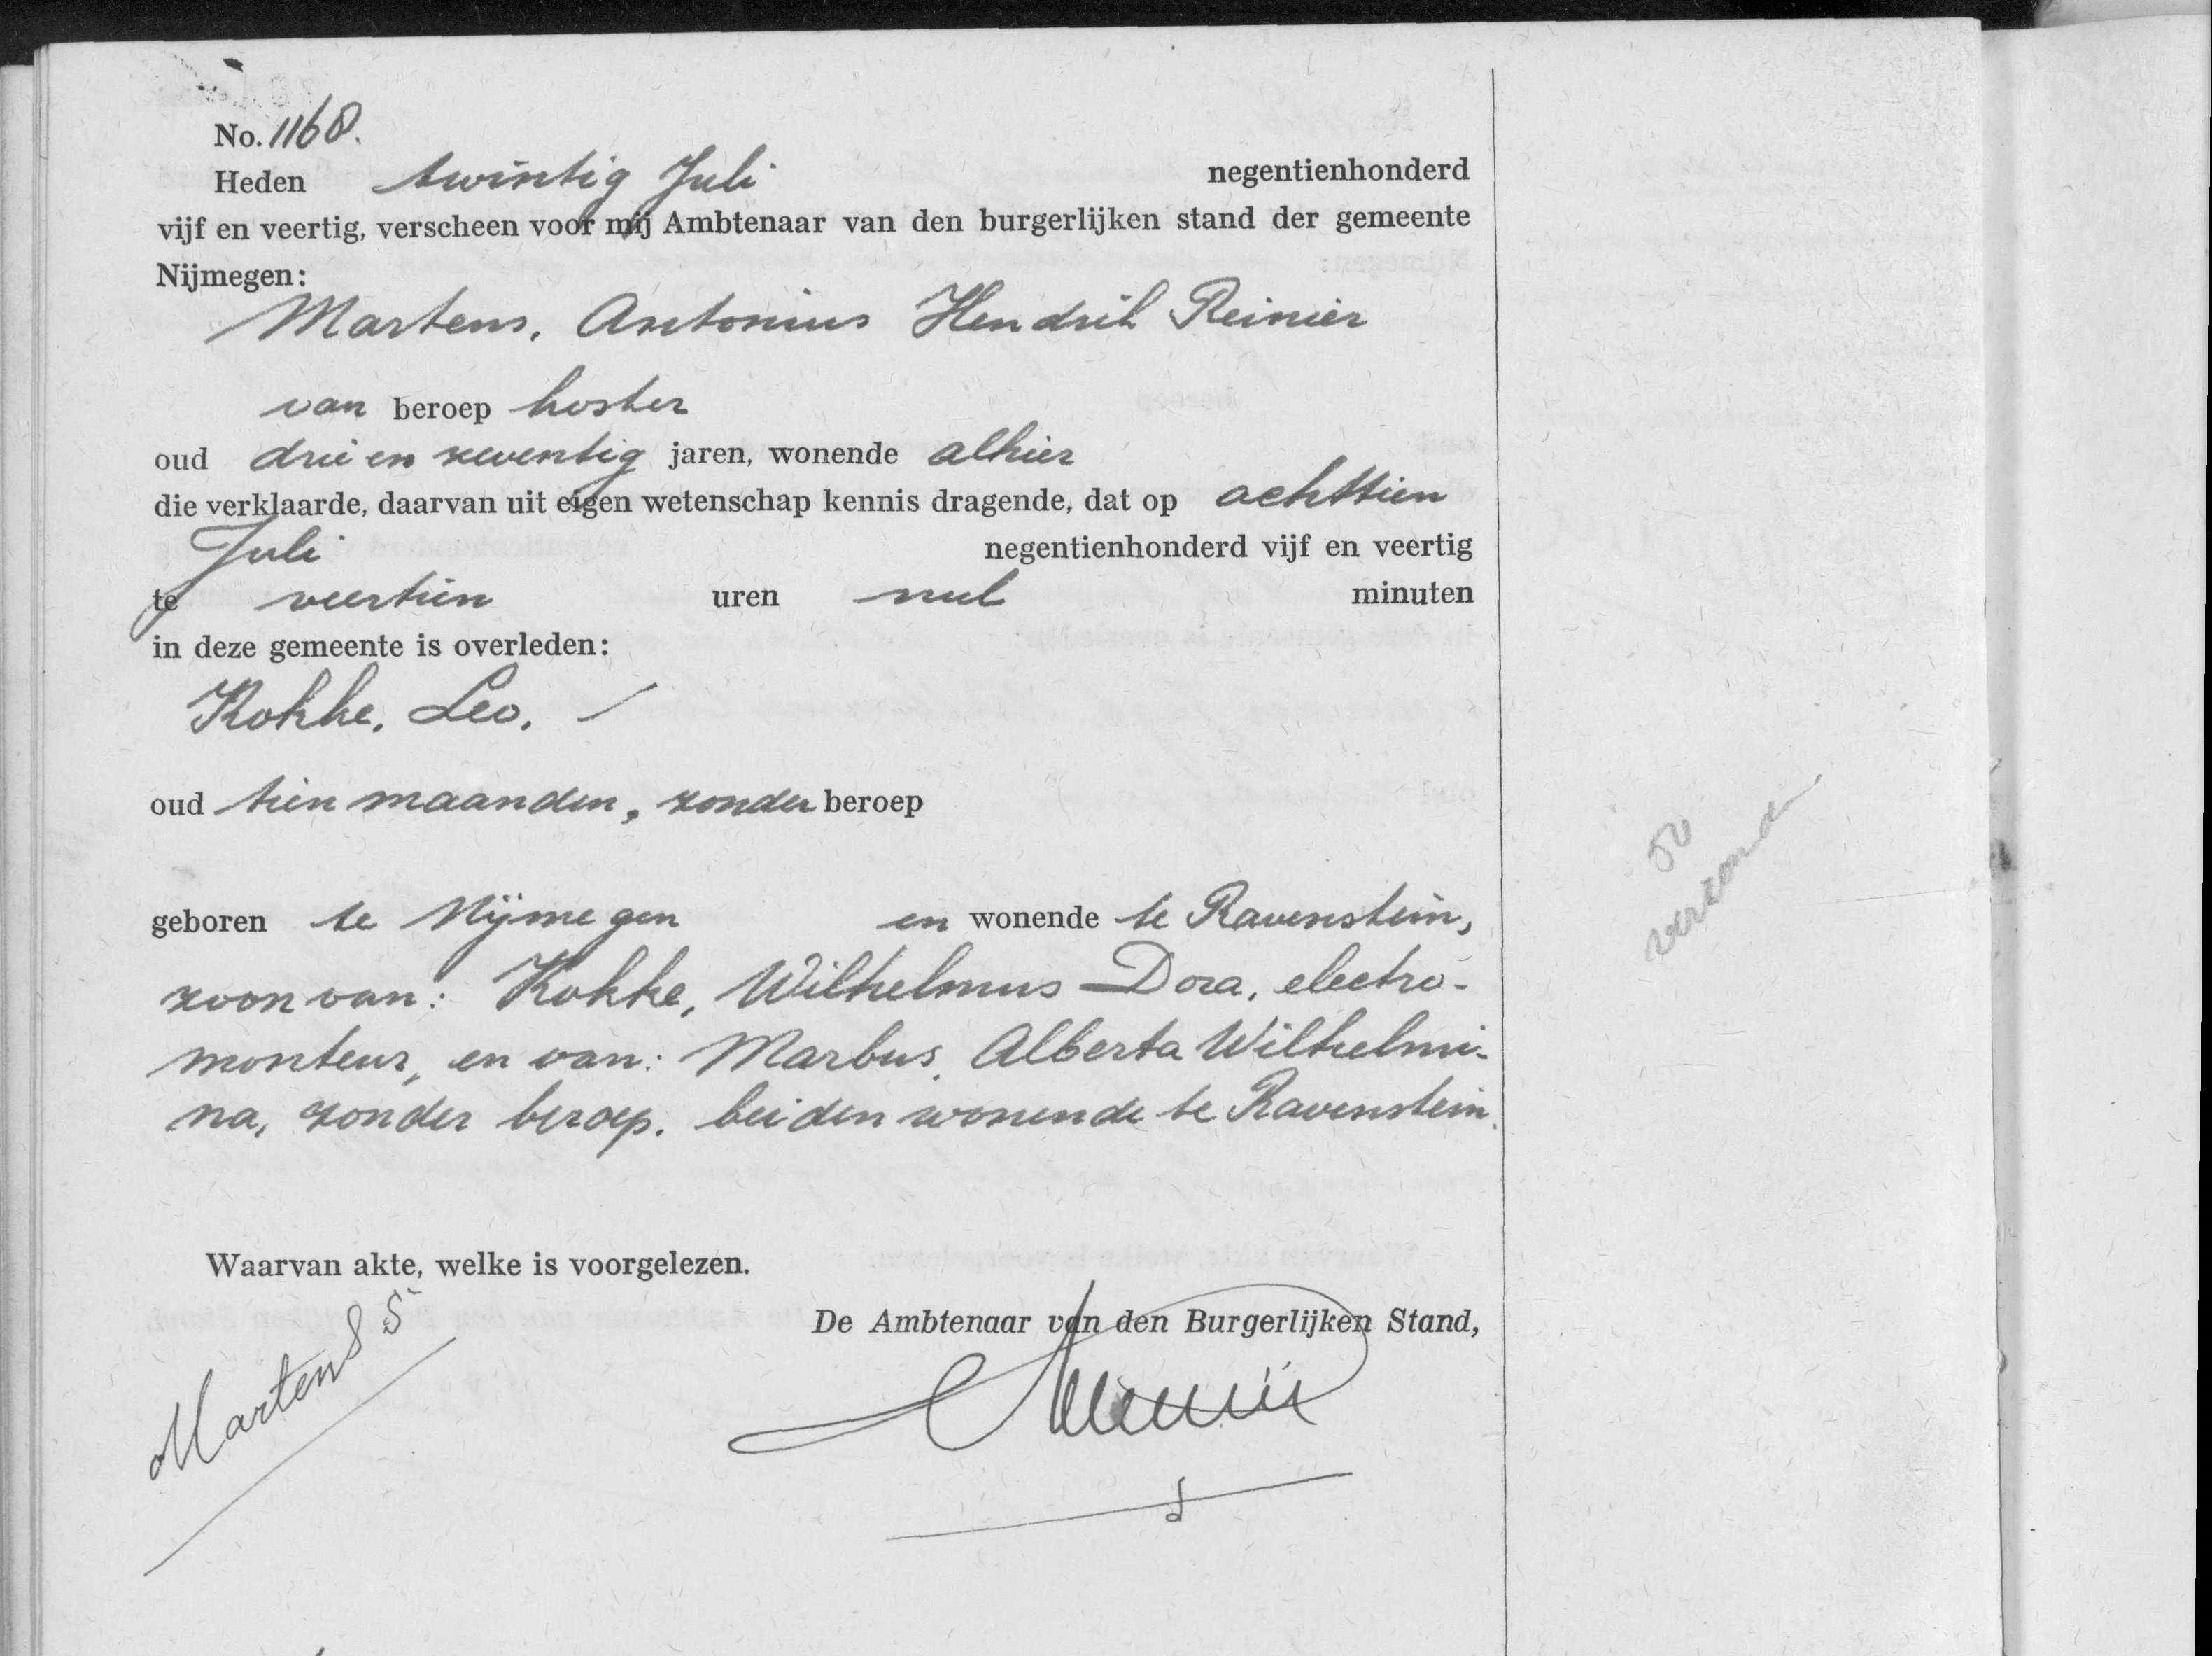 No. 1168.
Heden twintig Juli negentienhonderd
vijf en veertig, verscheen voor mij Ambtenaar van den burgerlijken stand der gemeente
Nijmegen:
Martens, Antonius Hendrik Reinier
van beroep koster
oud drie en zeventig jaren, wonende alhier
die verklaarde, daarvan uit eigen wetenschap kennis dragende, dat op achttien
Juli negentienhonderd vijf en veertig
te veertien uren nul minuten
in deze gemeente is overleden:
Kokke, Leo.
oud tien maanden, zonder beroep
geboren te Nijmegen en wonende te Ravenstein,
zoon van: Kokke, Wilhelmus Dora, electro-
monteur, en van: Marbus, Alberta Wilhelmi-
na, zonder beroep. beiden wonende te Ravenstein.
Waarvan akte, welke is voorgelezen.
De Ambtenaar van den Burgerlijken Stand,
Martens